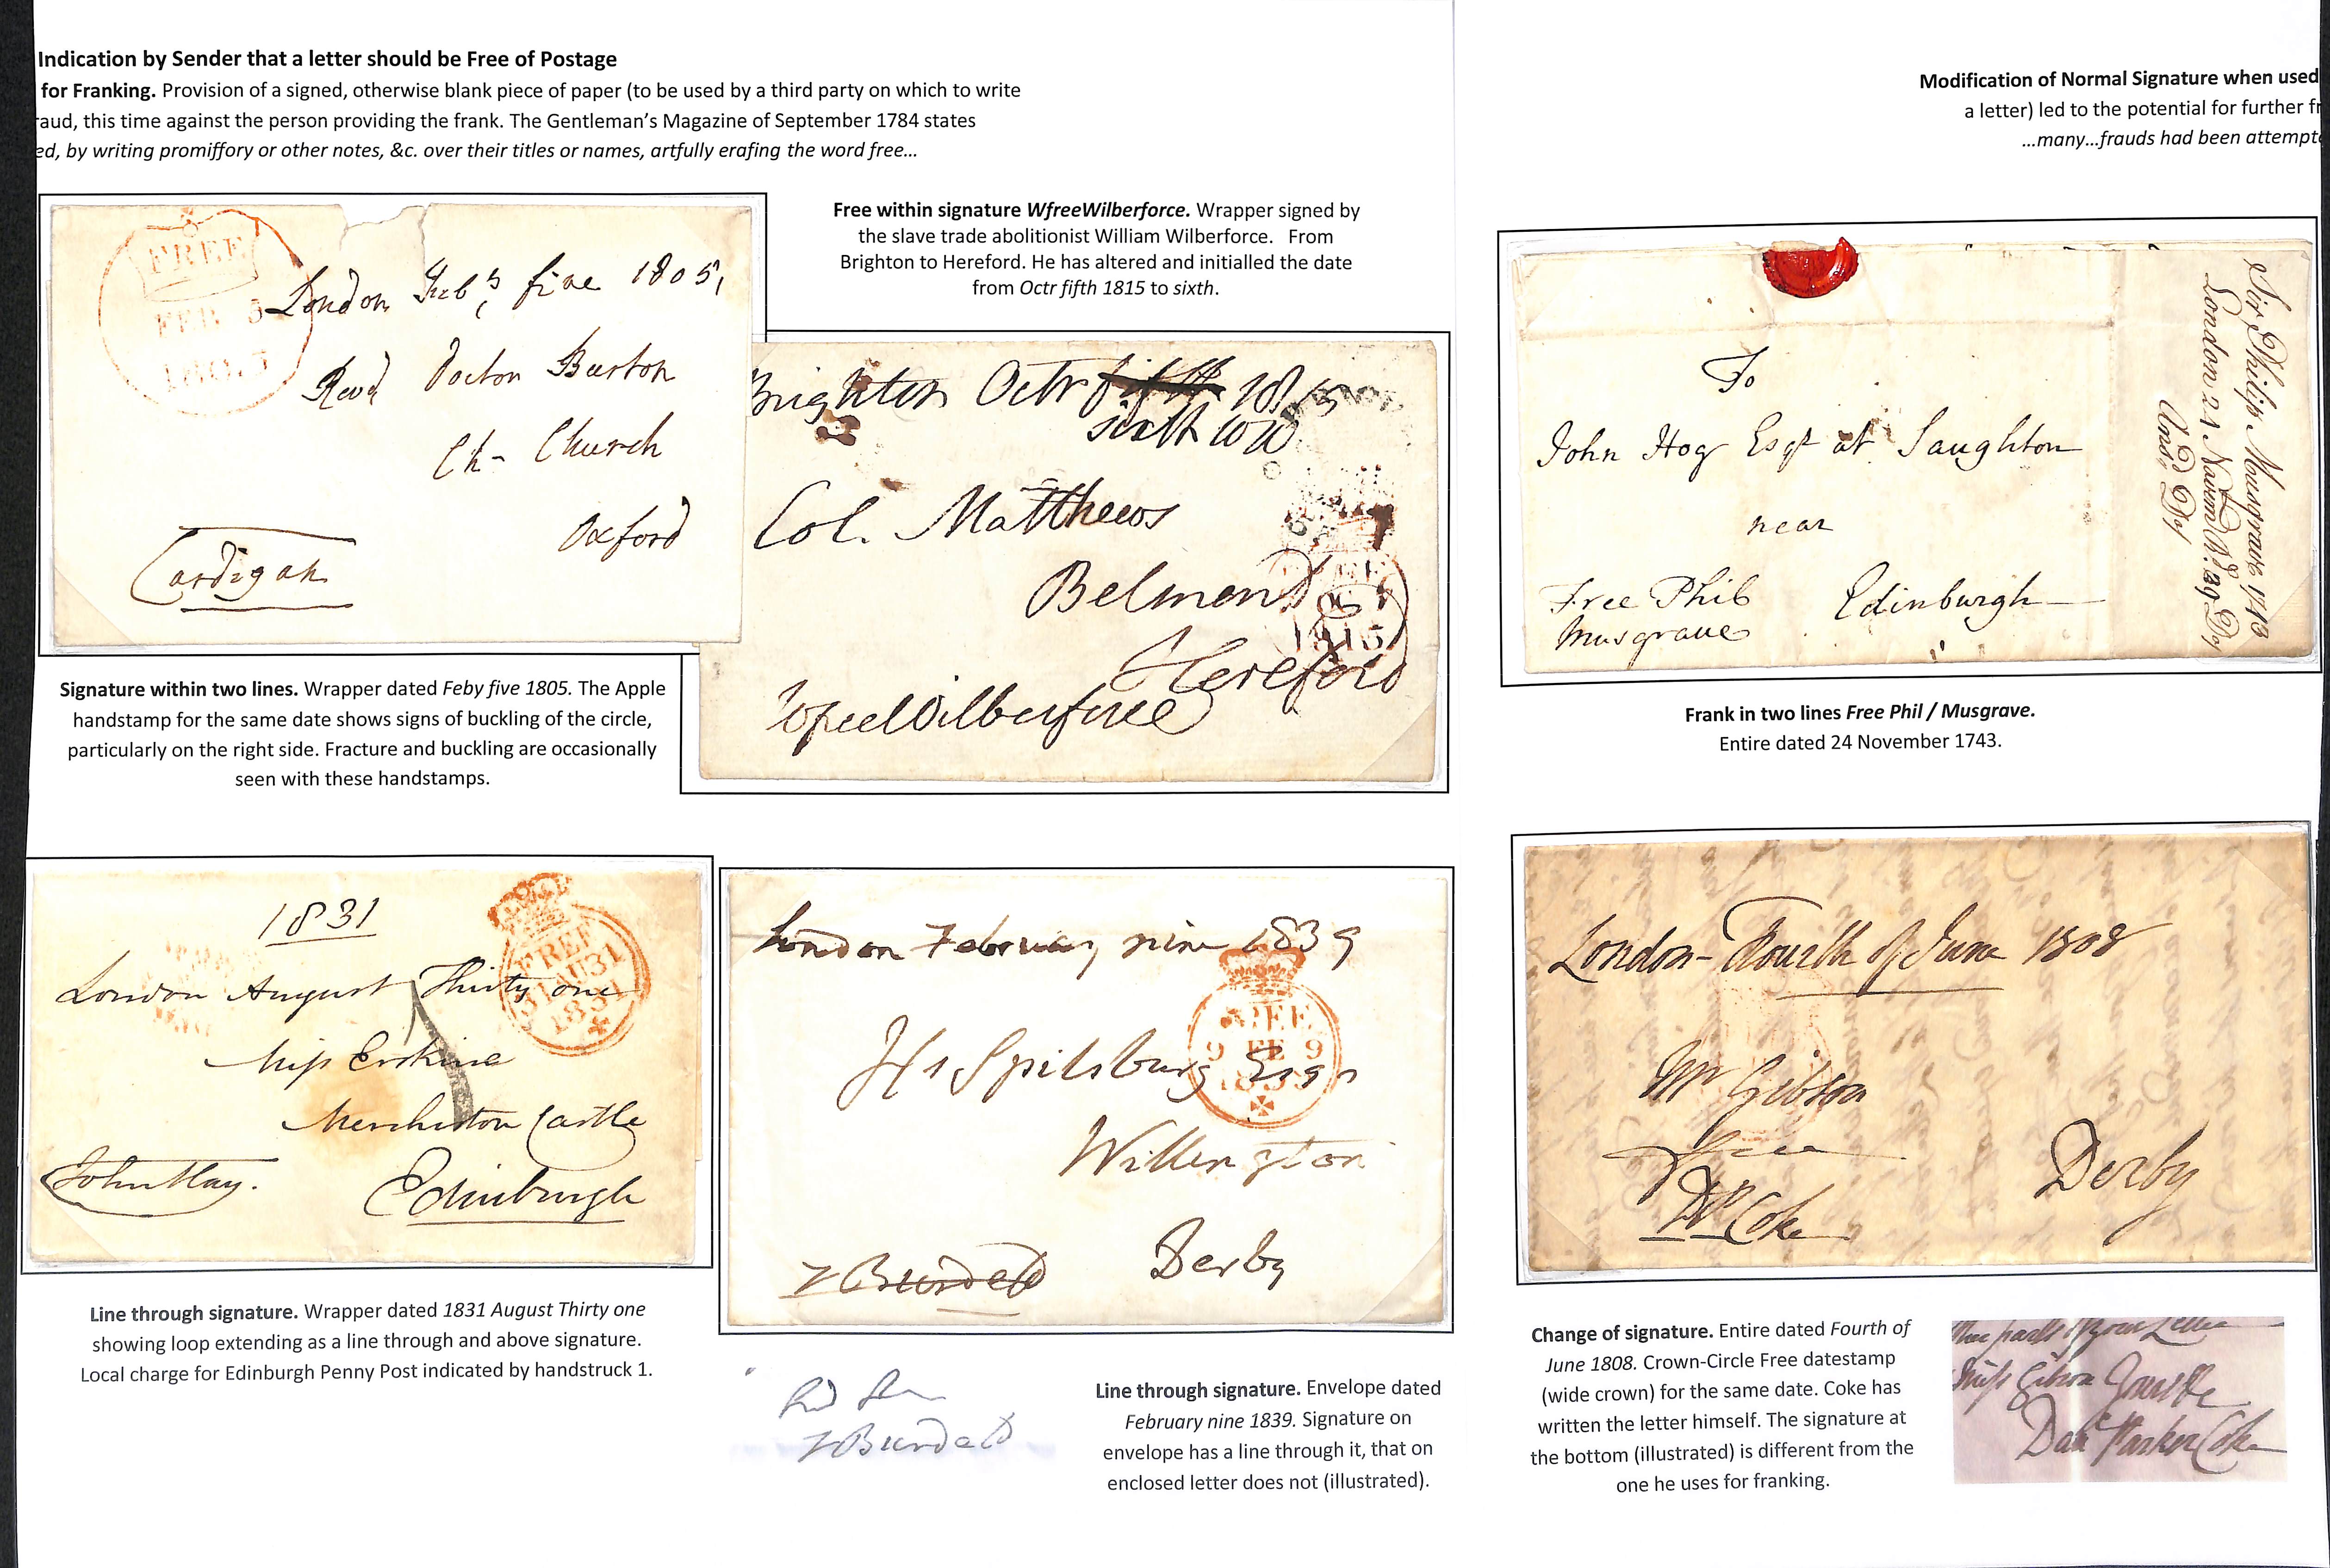 Indication by Sender that a letter should be Free of Postage
for Franking. Provision of a signed, otherwise blank piece of paper (to be used by a third party on which to write
raud, this time against the person providing the frank. The Gentleman's Magazine of September 1784 states
ed, by writing promiffory or other notes, &c. over their titles or names, artfully erafing the word free...
FREE
FEB 5
1805
London Feby five 1805,
Revd Doctor Burton
Ch- Church
Oxford
Cardigan
Signature within two lines. Wrapper dated Feby five 1805. The Apple
handstamp for the same date shows signs of buckling of the circle,
particularly on the right side. Fracture and buckling are occasionally
seen with these handstamps.
Free within signature WfreeWilberforce. Wrapper signed by
the slave trade abolitionist William Wilberforce. From
Brighton to Hereford. He has altered and initialled the date
from Octr fifth 1815 to sixth.
Brighton Octr fifth 1815
sixth WW
Col. Matthews
Belmont
Hereford
WfreeWilberforce
1815
1831
London August Thirty one
Miss Erskine
Merchiston Castle
Edinburgh
John Hay.
FREE
31 AU 31
1831
Line through signature. Wrapper dated 1831 August Thirty one
showing loop extending as a line through and above signature.
Local charge for Edinburgh Penny Post indicated by handstruck 1.
London February nine 1839
Hy Spilsbury Esqr
Willington
Derby
F Burdett
FREE
9 FE 9
1839
F Burdett
Line through signature. Envelope dated
February nine 1839. Signature on
envelope has a line through it, that on
enclosed letter does not (illustrated).
Modification of Normal Signature when used
a letter) led to the potential for further fr
...many...frauds had been attempt
To
John Hog Esqr at Saughton
near
Edinburgh
Free Phil
Musgrave
Sir Philip Musgrave 1743
London 24 Novem
Frank in two lines Free Phil / Musgrave.
Entire dated 24 November 1743.
London - Fourth of June 1808
Mr Gibson
Derby
Free
DP Coke
Change of signature. Entire dated Fourth of
June 1808. Crown-Circle Free datestamp
(wide crown) for the same date. Coke has
written the letter himself. The signature at
the bottom (illustrated) is different from the
one he uses for franking.
Danl Parker Coke